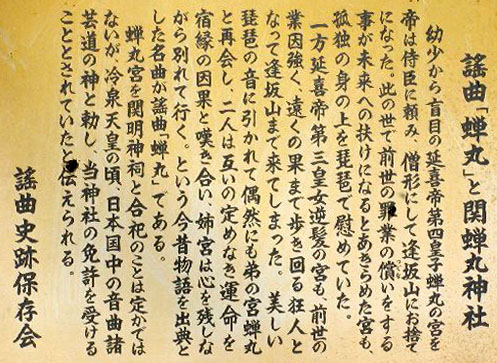 謡曲「蝉丸」と関蝉丸神社
幼少から盲目の延喜帝第四皇子蝉丸の宮を
帝は侍臣に頼み、僧形にして逢坂山にお捨
になった。此の世で前世の罪業の償いをする
事が未来への扶けになるとあきらめた宮も
孤独の身の上を琵琶で慰めていた。
一方延喜帝第三皇女逆髪の宮も、前世の
業因強く、遠くの果まで歩き回る狂人と
なって逢坂山まで来てしまった。美しい
琵琶の音に引かれて偶然にも弟の宮蝉丸
と再会し、二人は互いの定めなき運命を
宿縁の因果と嘆き合い、姉宮は心を残しな
がら別れて行く。という今昔物語を出典と
した名曲が謡曲「蝉丸」である。
蝉丸宮を関明神祠と合祀のことは定かでは
ないが、冷泉天皇の頃、日本国中の音曲諸
芸道の神と勅し、当神社の免許を受ける
こととされていたと伝えられる。
謡曲史跡保存会